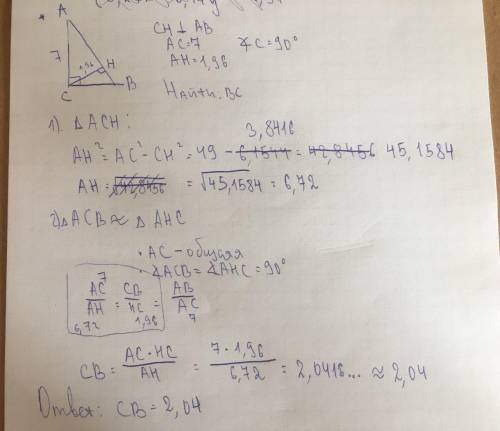 A
CH ⊥ AB
AC=7 ∢C=90°
7
1,96
H
AH=1,96
C B
Найти: BC
1) △ACH:
3,8416
AH² = AC² - CH² = 49 - 6,1544 = 42,8456 45,1584
AH = √42,8456 = √45,1584 = 6,72
2) △ACB ≈ △AHC
• AC - общая
• ∢ACB = ∢AHC = 90°
7
AC/AH = CB/HC = AB/AC
6,72 1,96 7
CB = AC·HC/AH = 7·1,96/6,72 = 2,0416... ≈ 2,04
Ответ: CB = 2,04